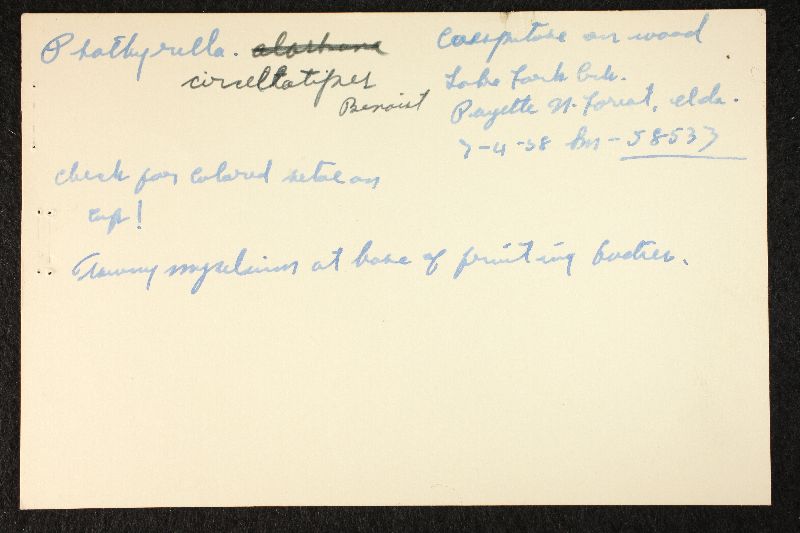 Psathyrella.
circellatipes
Benoist
Caespitose on wood
Lake Fork Crk.
Payette N. Forest, Ida.
7-4-58 Sm-58533
check for colored setae on
cap!
Tawny mycelium at base of fruiting bodies.